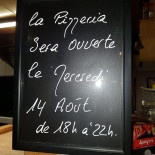 La Pizzeria
Sera ouverte
le Mercredi
14 Août
de 18h à 22h.